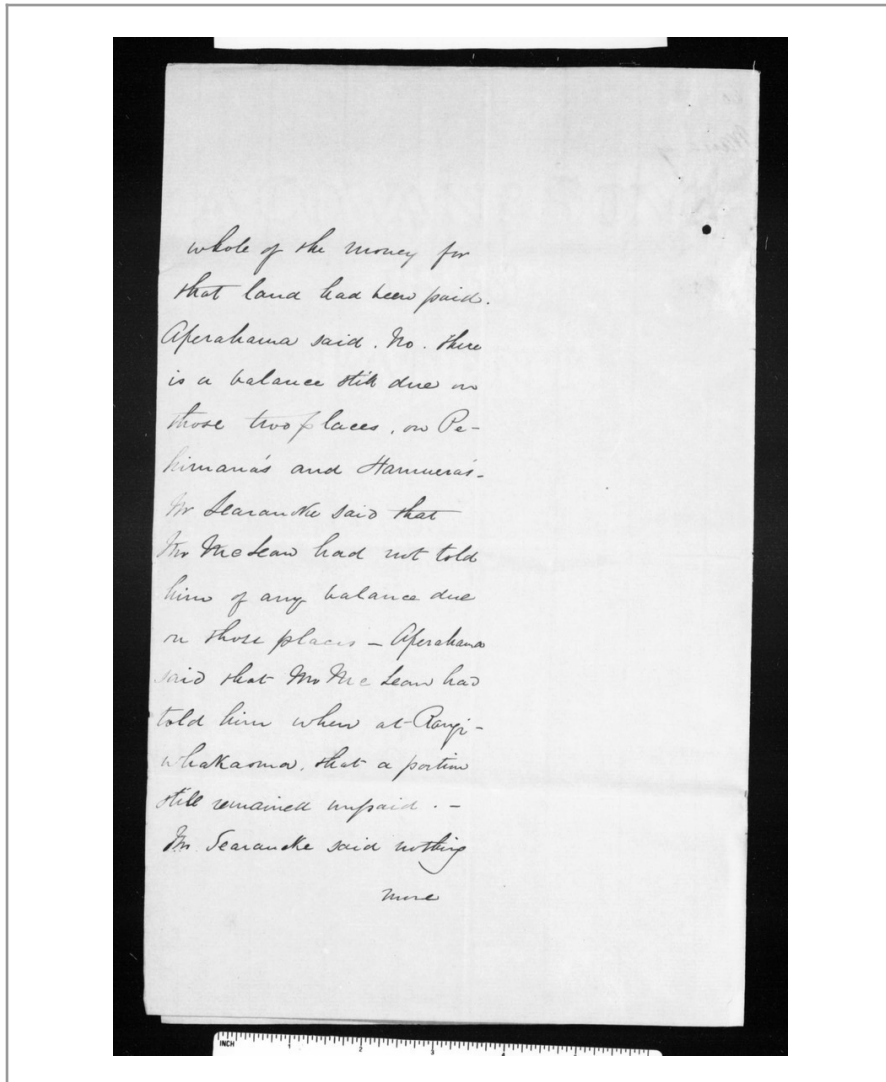 whole of the money for
that land had been paid.
Aperahama said. No. there
is a balance still due on
those two places, on Pe-
himana's and Hamuera's-
Mr Searancke said that
Mr McLean had not told
him of any balance due
on those places – Aperahama
said that Mr McLean had
told him when at Rangi-
whakaoma, that a portion
still remained unpaid. –
Mr. Searancke said nothing
more
INCH 1 2 3 4